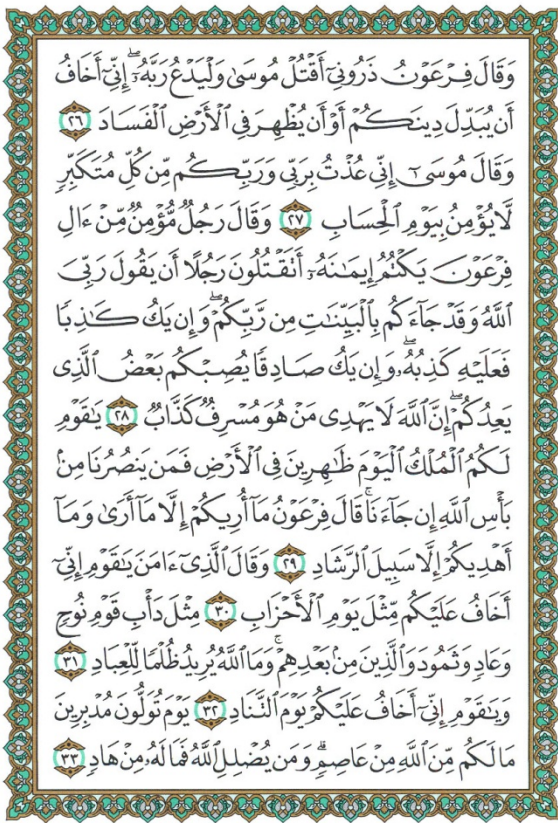 وَقَالَ فِرْعَوْنُ ذَرُونِيٓ أَقْتُلْ مُوسَىٰ وَلْيَدْعُ رَبَّهُۥٓۖ إِنِّيٓ أَخَافُ
أَن يُبَدِّلَ دِينَكُمْ أَوْ أَن يُظْهِرَ فِي ٱلْأَرْضِ ٱلْفَسَادَ ٢٦
وَقَالَ مُوسَىٰٓ إِنِّي عُذْتُ بِرَبِّي وَرَبِّكُم مِّن كُلِّ مُتَكَبِّرٍ
لَّا يُؤْمِنُ بِيَوْمِ ٱلْحِسَابِ ٢٧ وَقَالَ رَجُلٌ مُّؤْمِنٌ مِّنْ ءَالِ
فِرْعَوْنَ يَكْتُمُ إِيمَٰنَهُۥٓ أَتَقْتُلُونَ رَجُلًا أَن يَقُولَ رَبِّيَ
ٱللَّهُ وَقَدْ جَآءَكُم بِٱلْبَيِّنَٰتِ مِن رَّبِّكُمْۖ وَإِن يَكُ كَٰذِبًا
فَعَلَيْهِ كَذِبُهُۥۖ وَإِن يَكُ صَادِقًا يُصِبْكُم بَعْضُ ٱلَّذِي
يَعِدُكُمْۖ إِنَّ ٱللَّهَ لَا يَهْدِي مَنْ هُوَ مُسْرِفٌ كَذَّابٌ ٢٨ يَٰقَوْمِ
لَكُمُ ٱلْمُلْكُ ٱلْيَوْمَ ظَٰهِرِينَ فِي ٱلْأَرْضِ فَمَن يَنصُرُنَا مِنۢ
بَأْسِ ٱللَّهِ إِن جَآءَنَاۚ قَالَ فِرْعَوْنُ مَآ أُرِيكُمْ إِلَّا مَآ أَرَىٰ وَمَآ
أَهْدِيكُمْ إِلَّا سَبِيلَ ٱلرَّشَادِ ٢٩ وَقَالَ ٱلَّذِيٓ ءَامَنَ يَٰقَوْمِ إِنِّيٓ
أَخَافُ عَلَيْكُم مِّثْلَ يَوْمِ ٱلْأَحْزَابِ ٣٠ مِثْلَ دَأْبِ قَوْمِ نُوحٍ
وَعَادٍ وَثَمُودَ وَٱلَّذِينَ مِنۢ بَعْدِهِمْۚ وَمَا ٱللَّهُ يُرِيدُ ظُلْمًا لِّلْعِبَادِ ٣١
وَيَٰقَوْمِ إِنِّيٓ أَخَافُ عَلَيْكُمْ يَوْمَ ٱلتَّنَادِ ٣٢ يَوْمَ تُوَلُّونَ مُدْبِرِينَ
مَا لَكُم مِّنَ ٱللَّهِ مِنْ عَاصِمٍۗ وَمَن يُضْلِلِ ٱللَّهُ فَمَا لَهُۥ مِنْ هَادٍ ٣٣